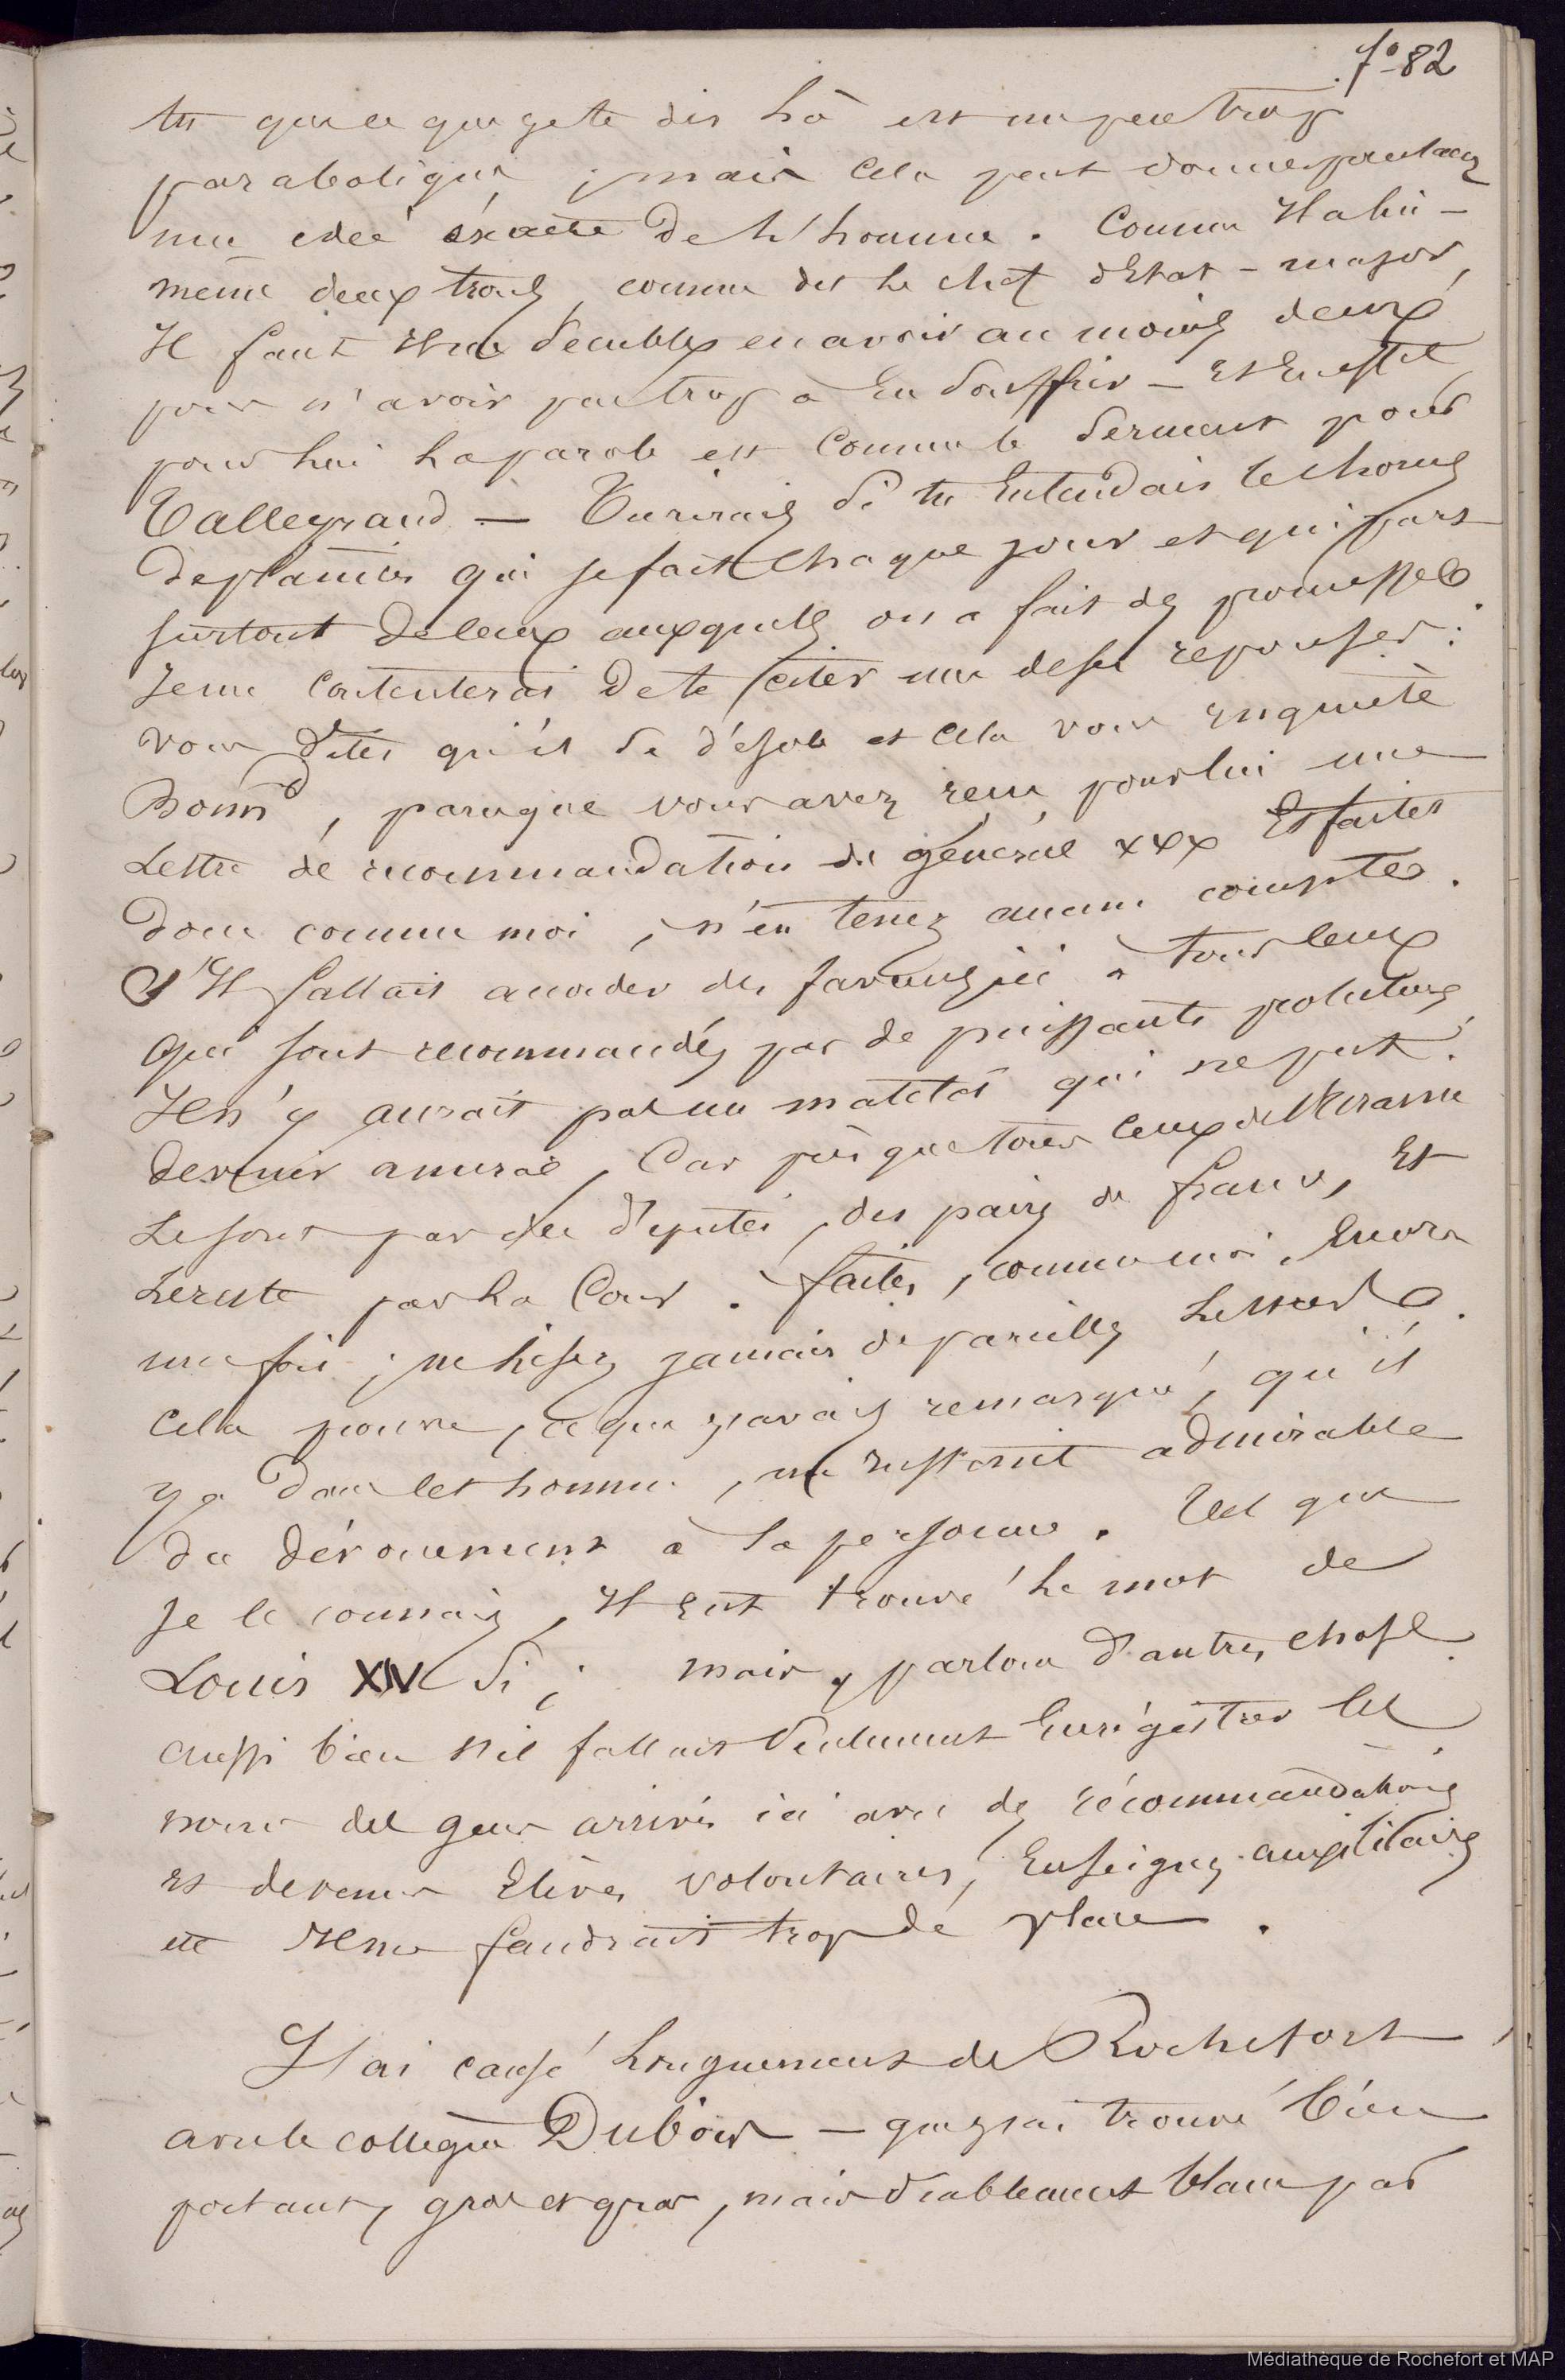 f° 82
tu que ce que je te dis là est un peu trop
parabolique, mais cela peut donner pourtant
une idée éxacte de l'homme. Comme Il a lui-
même deux trous, comme dit le chef d'Etat-major,
Il faut Ensembles en avoir au moins deux
pour n'avoir pas trop à En Souffrir — Et En effet
pour lui la parole est Comme le Serment pour
Talleyrand. — Tu rirais Si tu Entendais le chorus
de plaintes qui se fait chaque jour et qui part
surtout de Ceux auxquels on a fait des promesses.
Je me Contenterai de te citer une de ses reponses :
vous dites qu'il Se désole et Cela vous Inquiète
Bonnd, parceque vous avez reçu pour lui une
Lettre de recommandation du général xxx Et faites
donc comme moi, n'en tenez aucun comptes.
S'Il fallait accorder des faveurs ici à tous Ceux
qui sont recommandés par de puissants protecteurs,
Il n'y aurait pas un matelot qui ne put
devenir amiral, Car puisque tous Ceux de l'Uranie
Le sont par des députés, des pairs de france, Et
Le reste par La Cour. faites, comme moi, Encore
une fois ; ne lisez jamais de pareilles Lettres.
Cela prouve, ce que j'avais remarqué, qu'il
y a dans cet homme, un Instinct admirable
du dévouement à Sa personne. Tel que
Je le connais, Il Eut trouvé le mot de
Louis XIV Si ; mais, parlons d'autres chose.
aussi bien s'il fallait Seulement Enrégistrer les
noms des gens arrivés ici avec des récommandations
Et devenus Elèves volontaires, Enseignes auxilitaires
etc Il me faudrait trop de place.
J'ai causé Longuement de Rochefort
avec le collegue Dubois — que j'ai trouvé bien
portant, gros et gras, mais diablement blanc par
Médiathèque de Rochefort et MAP